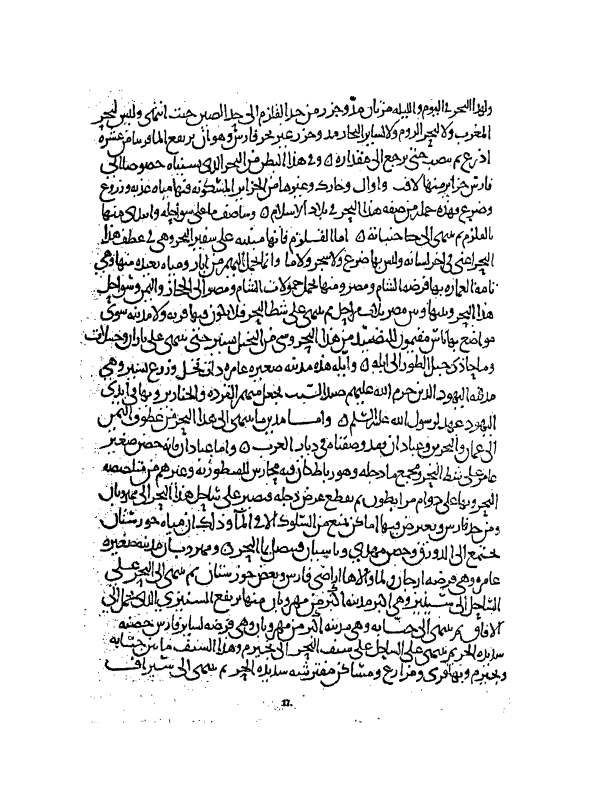 ولهذا البحر في اليوم والليله مرتان مد وجزر من حد القلزم الى حد الصين حيث انتهى وليس لبحر
المغرب ولا لبحر الروم ولا لساير البحار مد وجزر غير بحر فارس وهو ان يرتفع الما قريبا من عشره
اذرع ثم ينصب حتى يرجع الى مقداره ٥ وفي هذا البطن من البحر الذي نسبناه خصوصا الى
فارس جزاير منها لافت واوال وخارك وغيرها من الجزاير المسكونه فيها مياه عذبه وزروع
وضرع وهذه جمله من صفه هذا البحر في بلاد الاسلام ٥ وساصف ما على سواحله وابتدي منها
بالقلزم ثم ننتهي الى حافتيه ٥ اما القلزم فانها مدينه على شفير البحر وهي في عطف هذا
البحر اعني في اخر لسانه وليس بها ضرع ولا شجر ولا ما وانما يحمل اليهم من ابار ومياه بعيده منها وهي
تامه العماره بها فرضه الشام ومصر ومنها تحمل حمولات الشام ومصر الى الحجاز واليمن وسواحل
هذا البحر وبينها وبين مصر مراحل ثم ننتهي على شط البحر فلا يكون بها قريه ولا مدينه سوى
مواضع بها ناس مقيمون للصيد من هذا البحر وشي من النخيل يسير حتى ننتهي على تاران وجبيلات
وما حاذى جبل الطور الى ايله ٥ وايله هذه مدينه صغيره عامره ذات نخل وزروع يسير وهي
مدينه اليهود الذين حرم الله عليهم صيد السبت وجعل منهم القرده والخنازير وبها في ايدي
اليهود عهد لرسول الله عليه السلم ٥ واما مدين ما ينتهي الى هذا البحر من عطوف اليمن
الى عمان والبحرين وعبادان فقد وصفناه في ديار العرب ٥ واما عبادان فانه حصن صغير
عامر على شط البحر ومجمع ما دجله وهو رباط كان فيه محارس للصفريه وغيرهم من متلصصه
البحر وبها على دوام مرابطون ثم نقطع عرض دجله فنصير على ساحل هذا البحر الى مهروبان
ومن حد فارس ويعترض فيها اماكن تمنع من السلوك الا في الما وذلك ان مياه خورستان
تجتمع الى الدورق وحصن مهدي وباسيان فيتصل بما البحر ٥ ومهروبان مدينه صغيره
عامره وهي فرضه ارجان وما والاها اراضي فارس وبعض خورستان ثم ننتهي الى البحر على
الساحل الى شينيز وهي اكبر مدينه اكثر من مهروبان منها يرتفع السينيزي الذي يحمل الى
الافاق ثم ننتهي الى جنابه وهي مدينه اكثر من مهروبان وهي فرضه لساير فارس خصبه
شديده الحر ثم ننتهي على الساحل على سيف البحر الى نجيرم وهذا السيف ما بين جنابه
ونجيرم وبها قرى ومزارع ومساكن مفترشه شديده الحر ثم ننتهي الى سيراف